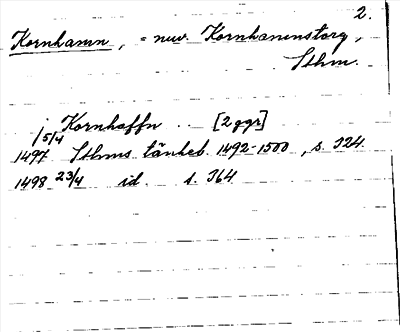 2.
Kornhamn, = nuv. Kornhamnstorg,
Sthm.
Kornhaffn .. [2 ggr]
15/4
1497 Sthms tänkeb. 1492-1500, s. 324.
1498 23/4 id. s. 364